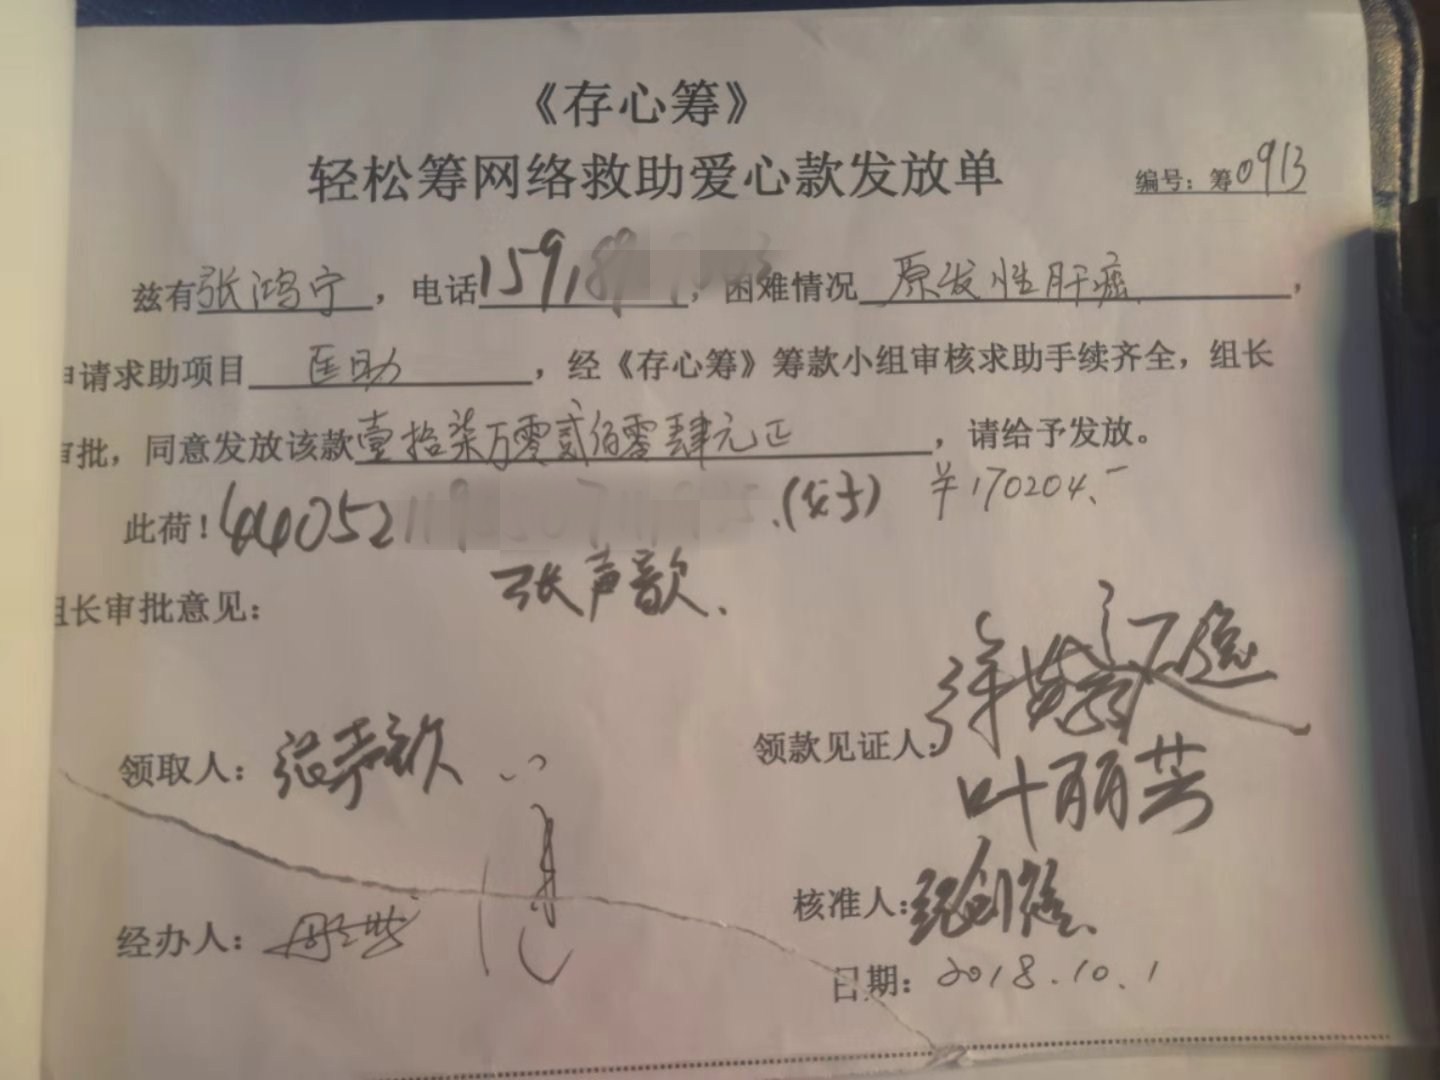 《存心筹》
轻松筹网络救助爱心款发放单
编号：筹0913
兹有张鸿宁，电话159189，困难情况原发性肝癌，
申请求助项目医助，经《存心筹》筹款小组审核求助手续齐全，组长
审批，同意发放该款壹拾柒万零贰佰零肆元正，请给予发放。
¥170204.-
此荷！440521（女子）
张声歆.
组长审批意见：
领取人：张声歆
领款见证人：
叶丽芸
经办人：
核准人：
日期：2018.10.1